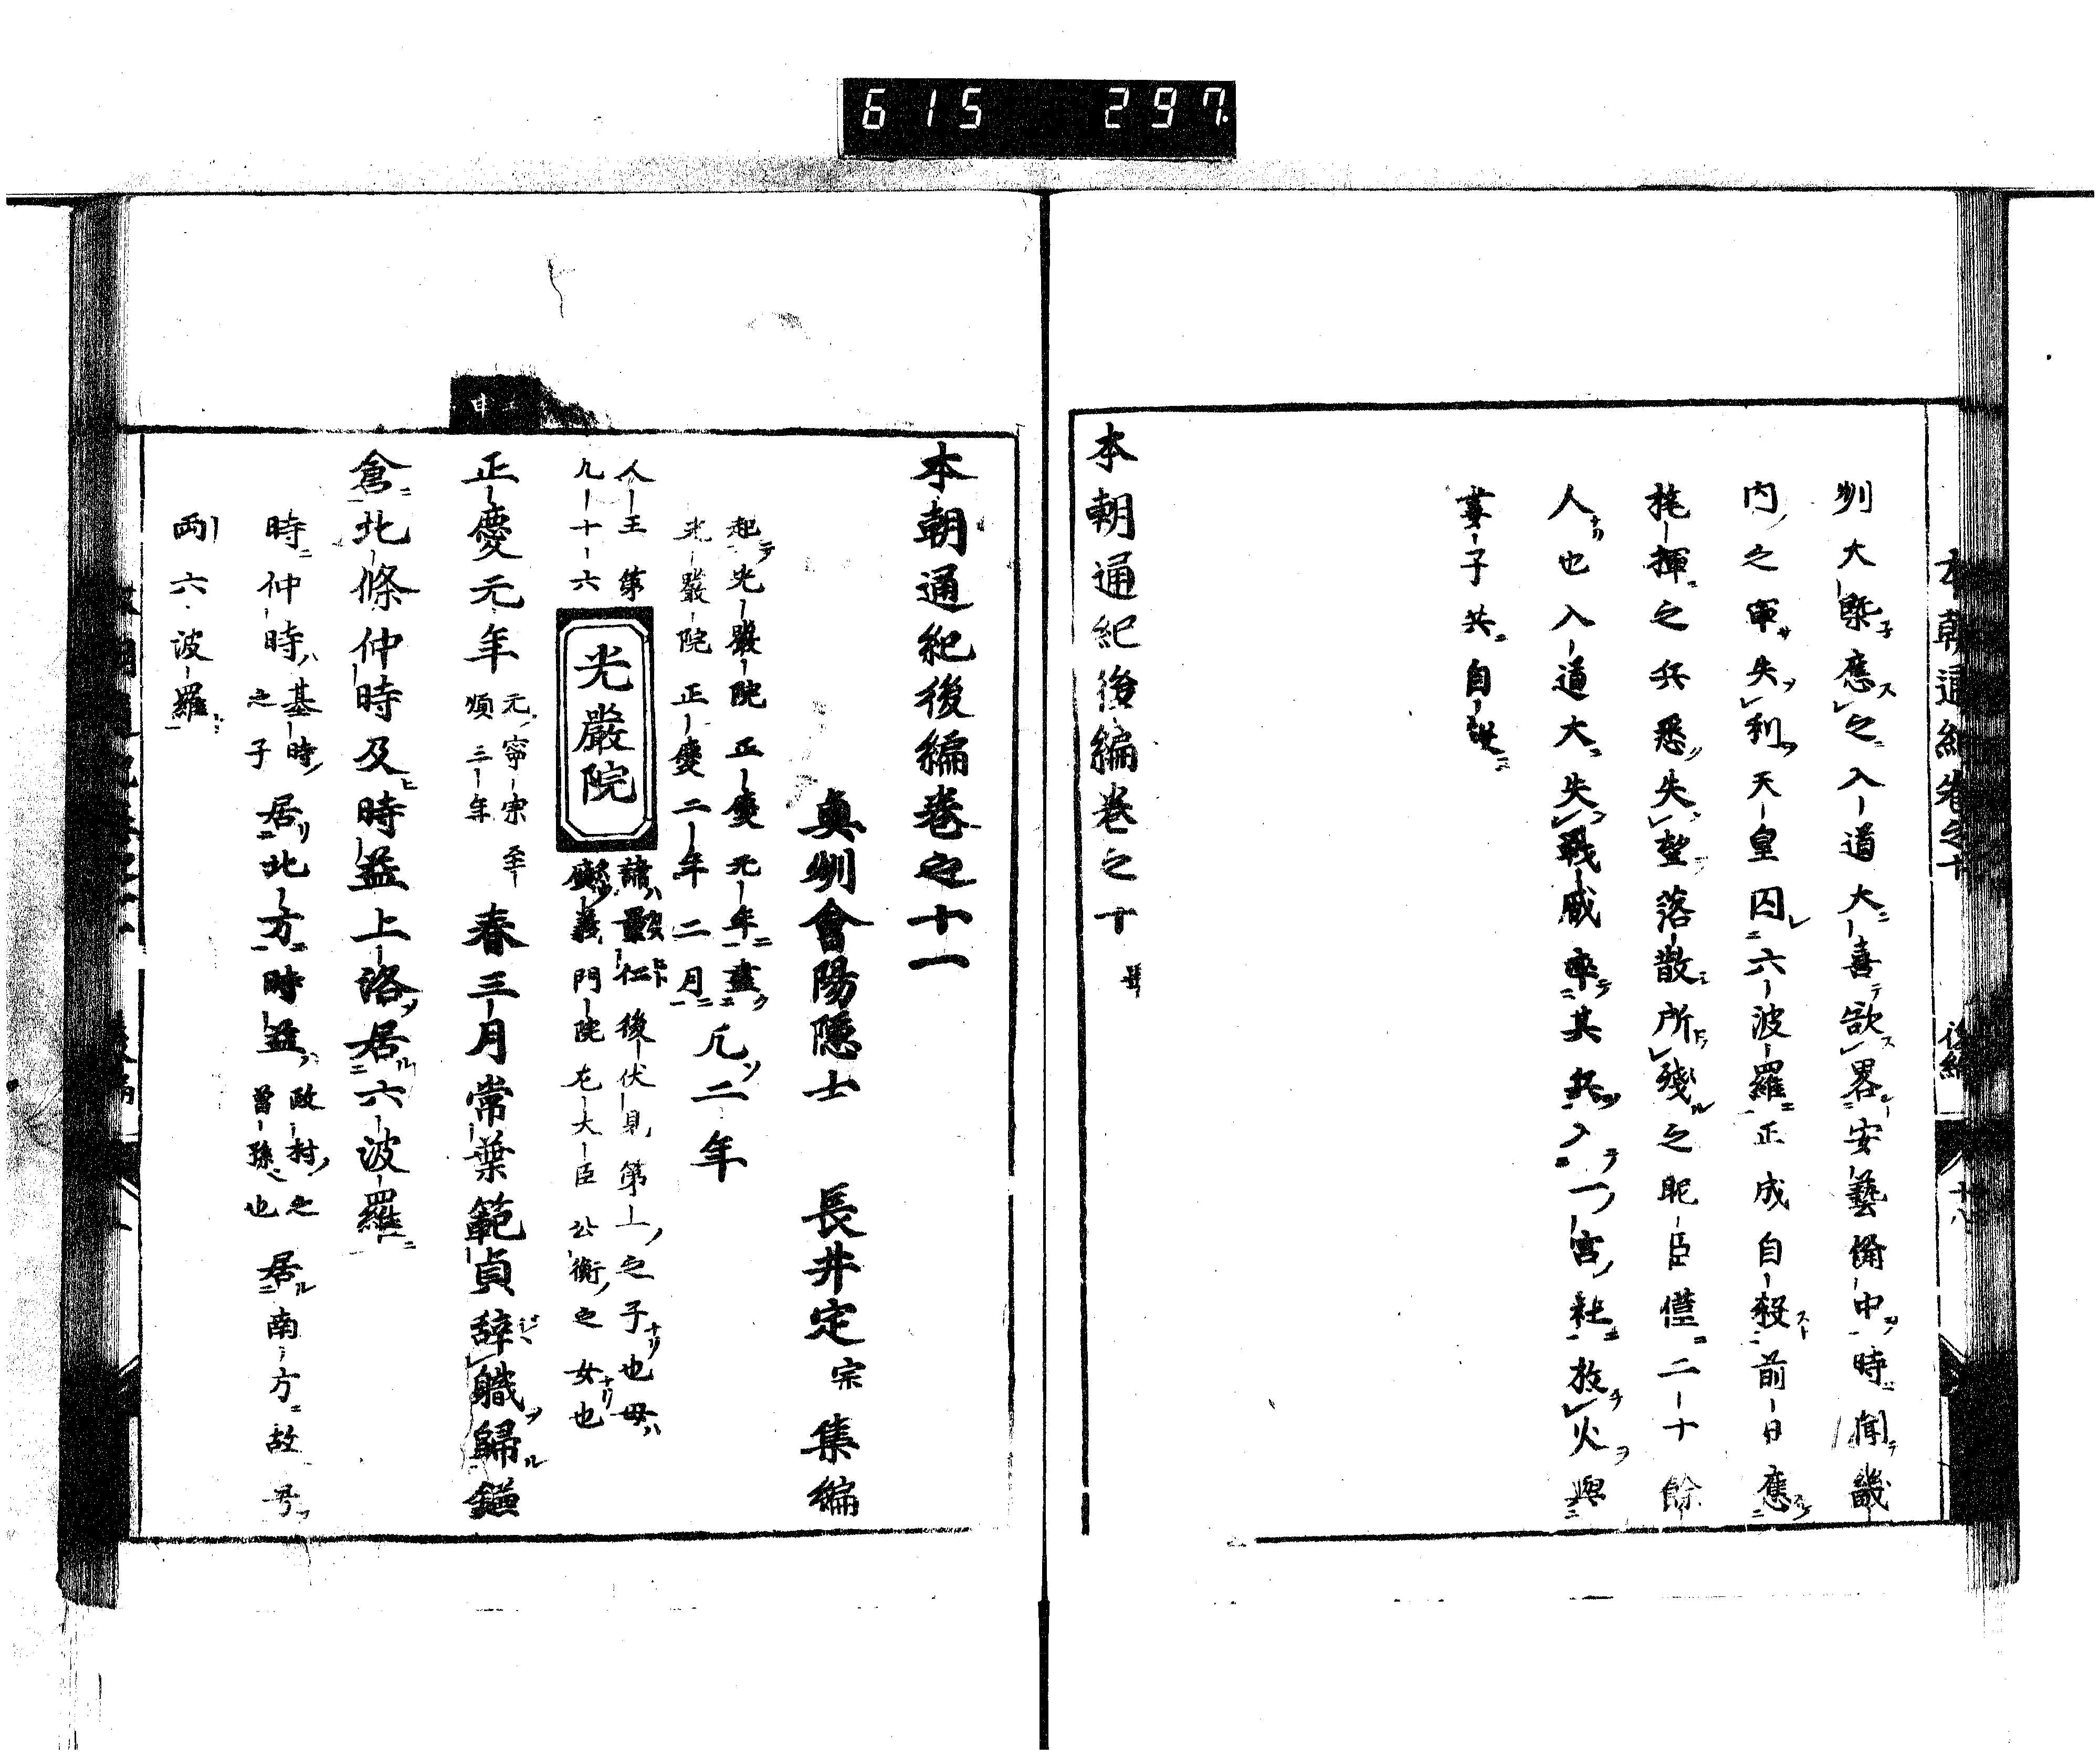 615 297
本朝通紀卷之十 後編 十八
州大槩應之入道大喜欲畧安藝備中時聞畿
内之軍失利天皇囚六波羅正成自殺前日應
挓揮之兵悉失望落散所殘之眤臣僅二十餘
人也入道大失戰威率其兵入一宮社放火與
妻子共自
本朝通紀後編巻之十
本朝通紀後編卷之十一
奥州會陽隱士 長井定宗集編
起光嚴院正慶元年盡
光嚴院正慶二年二月
凡二年
人王第
九十六
光嚴院
諱量仁後伏見第一之子也母ハ
廣義門院左大臣公衡之女也
正慶元年
元寧宗至
順三年
春三月常葉範貞辞職歸鎌
倉北條仲時及時益上洛居六波羅
時仲時基時
之子
居北方時益
政村之
曽孫也
居南方故号
両六波羅